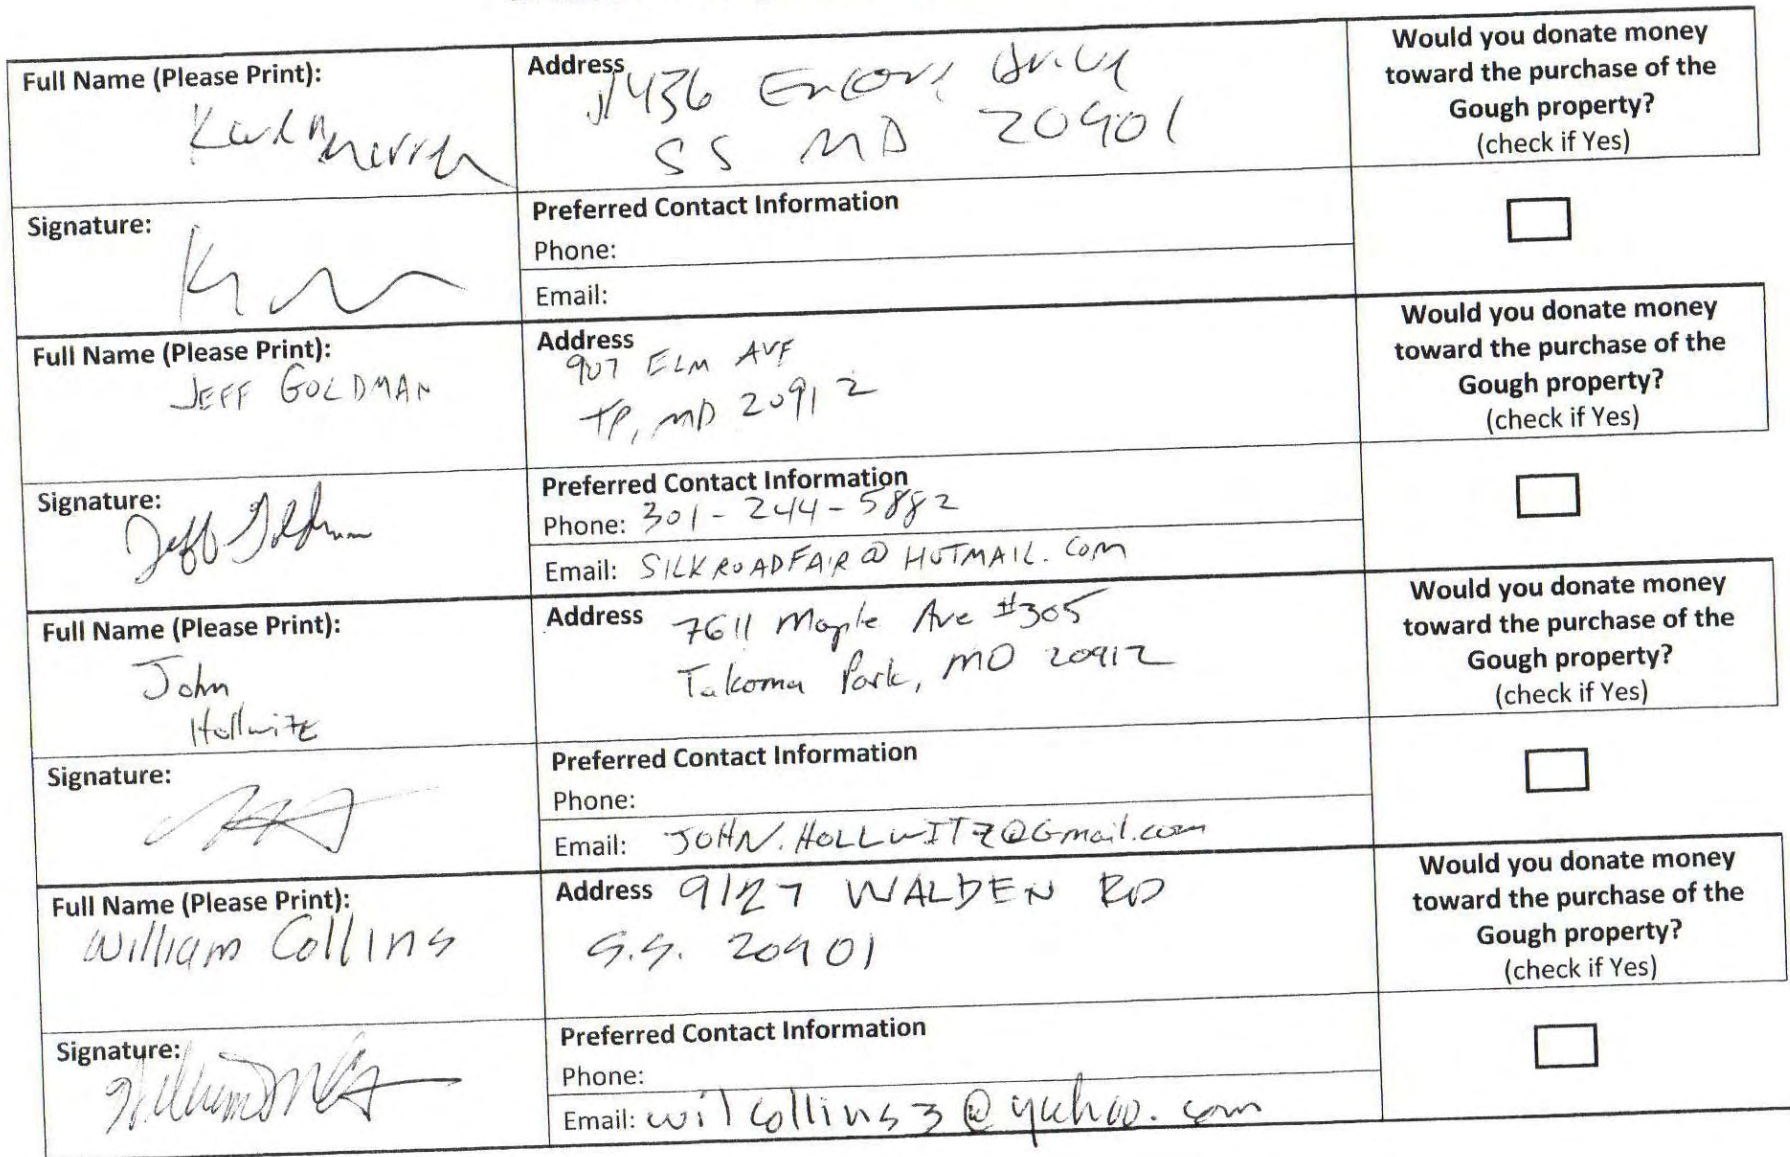 Full Name (Please Print):
Address
11436 Encore Drive
SS MD 20901
Would you donate money
toward the purchase of the
Gough property?
(check if Yes)
Signature:
Preferred Contact Information
Phone:
Email:
Full Name (Please Print):
JEFF GOLDMAN
Address
907 ELM AVE
TP, MD 20912
Would you donate money
toward the purchase of the
Gough property?
(check if Yes)
Signature:
Jeff Goldman
Preferred Contact Information
Phone: 301-244-5882
Email: SILKROADFAIR@HOTMAIL.COM
Full Name (Please Print):
John
Hollwitz
Address
7611 Maple Ave #305
Takoma Park, MD 20912
Would you donate money
toward the purchase of the
Gough property?
(check if Yes)
Signature:
Preferred Contact Information
Phone:
Email: JOHN.HOLLWITZ@Gmail.com
Full Name (Please Print):
William Collins
Address 9127 WALDEN RD
S.S. 20901
Would you donate money
toward the purchase of the
Gough property?
(check if Yes)
Signature:
Preferred Contact Information
Phone:
Email: wilcollins3@yahoo.com